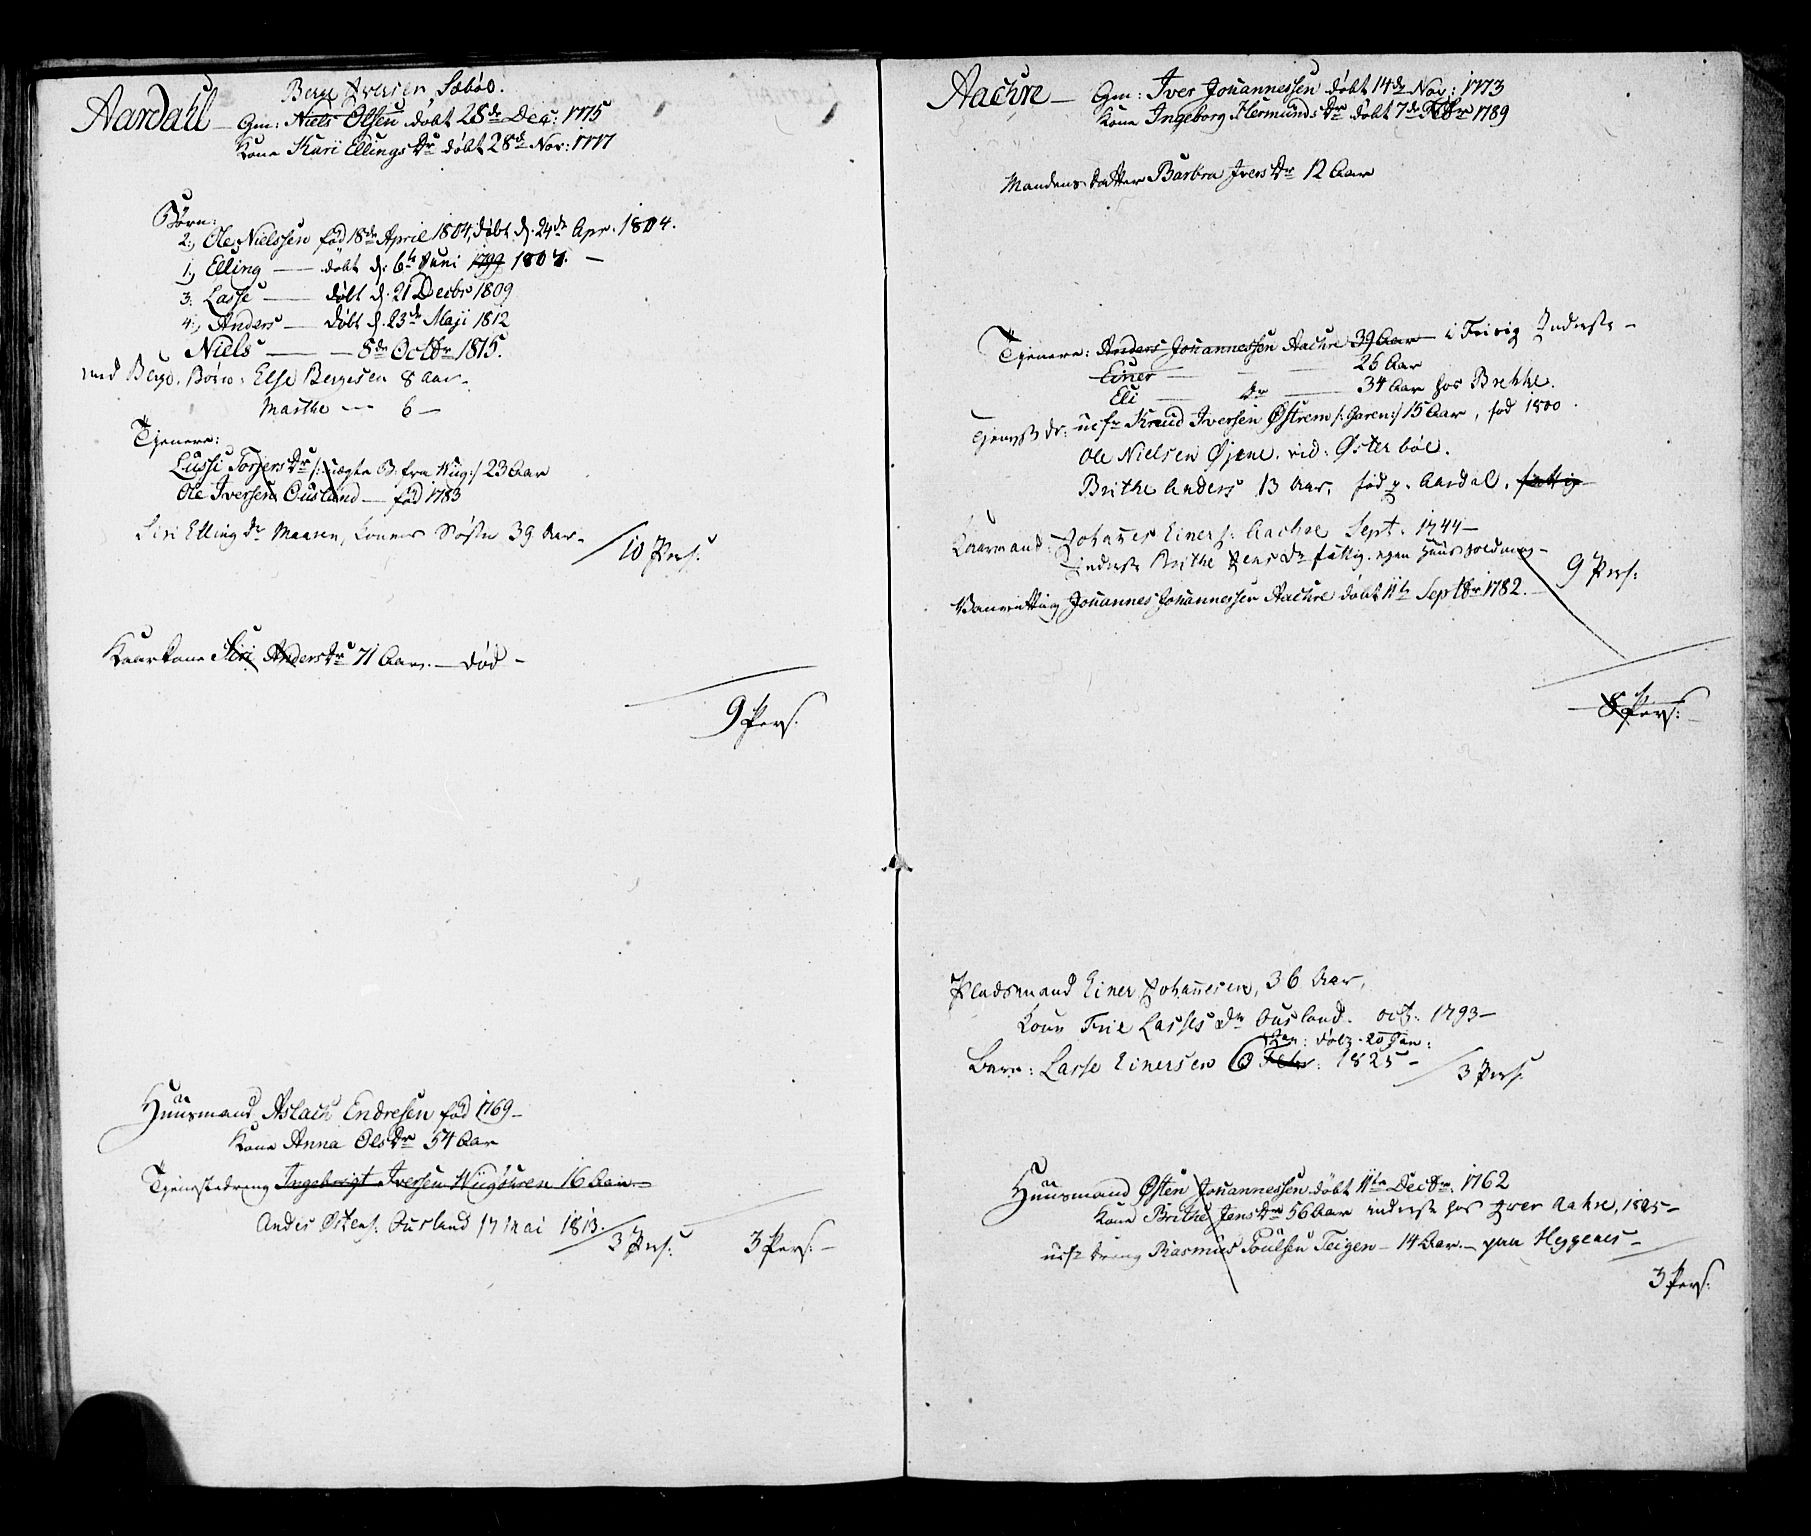 Berge Iversen Sæbøe.
Aardahl — Gm: Niels Olsen døbt 28de Dec: 1775
Kone Kari Ellings Dr døbt 28de Nov: 1777
Børn:
2, Ole Nielssen fød 18de April 1804, døbt d. 24de Apr. 1804.
1, Elling — døbt d: 6te Juni 1799 1801. —
3: Lasse — døbt d. 21 Decbr 1809
4, Anders — døbt d. 23de Maji 1812
Niels — — 8de Octbr 1815.
med Berge. Børn: Else Bergesen 8 Aar.
Marthe — 6 —
Tjenere:
Lussi Torgers Dr /: uægte B. fra Wiig :/ 23 Aar
Ole Iversen Ousland — fød 1783
Siri Elling Dr Maaren, Konens Søster 39 Aar. 10 Pers:
Kaarkone Siri Anders Dr 71 Aar. — død —
9 Pers.
Huusmand Aslach Endresen fød 1769 —
Kone Anna Ols Dr 54 Aar
Tjenestedreng Ingebrigt Iversen Wiigøuren 16 Aar. —
Anders Østens. Ousland 17 Mai 1813. 3 Pers: 3 Pers: —
Aachre — Gm: Iver Johannessen døbt 14de Nov: 1773
Kone Ingeborg Hermunds Dr døbt 7de Febr 1789
Mandens Datter Barbra Ivers Dr 12 Aar
Tjenere: Anders Johannessen Aachre 39 Aar — i Feivig Inderste —
Einer — — 26 Aar
Eli — Dr — 34 Aar hos Brekke.
Tjeneste dr: Knud Iversen Østrem /: Garen :/ 15 Aar, fød 1800.
Ole Nielsen Øjene. vid: Østerbøe.
Brithe Anders 13 Aar, fød p. Aardal. fattig
Kaarmand: Johannes Einers: Aachre Sept. 1744 —
Inderste Brithe Jens Dr fattig. egen Huusholdning — 9 Pers:
Vanvittig Johannes Johannessen Aachre døbt 11te Septbr 1782. —
8 Pers: —
Pladsmand Einer Johannesen, 36 Aar,
Kone Lasses Dr Ousland. Oct. 1793 —
Jan: døbt. 20 Jan:
Barn: Lasse Einersen 6 Febr: 1825 — 3 Pers:
Huusmand Østen Johannessen døbt 11te Decbr: 1762
Kone Brithe Jens Dr 56 Aar inderste hos Iver Aakre, 1825 —
dreng Rasmus Poulsen Teigen — 14 Aar. — paa Heggenes —
3 Pers: